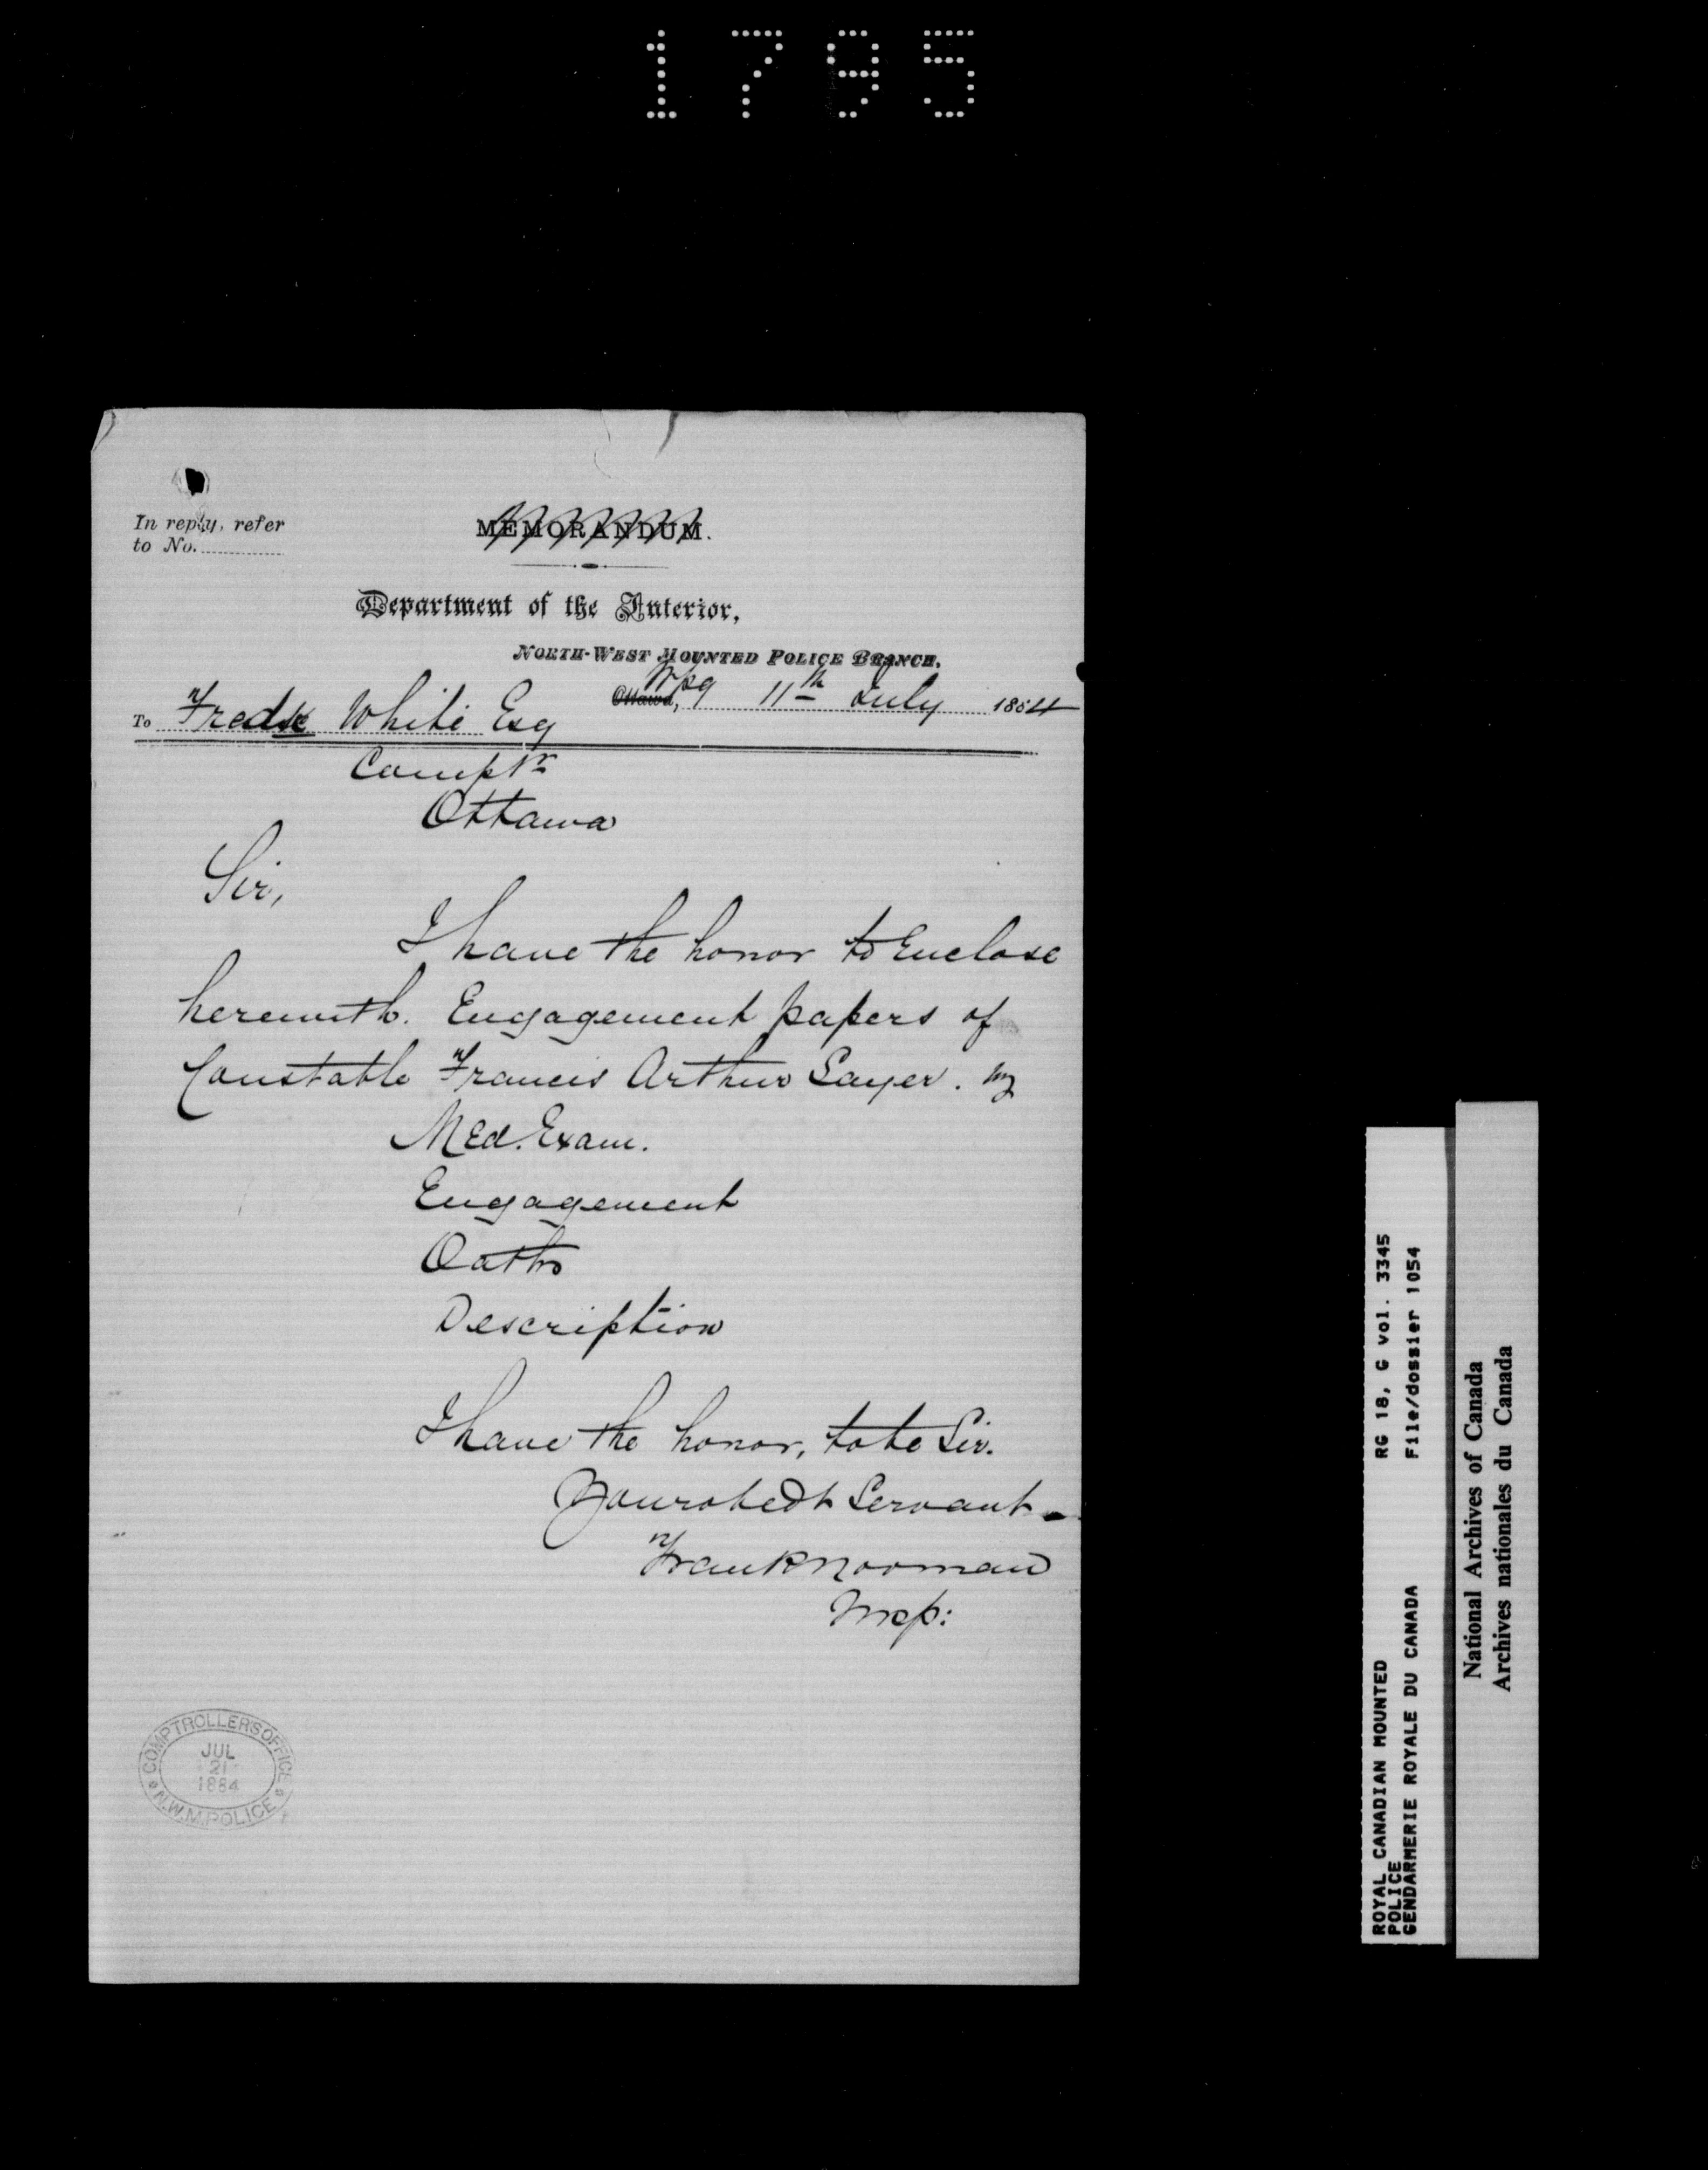 1795
In reply, refer
to No.
MEMORANDUM.
Department of the Interior,
NORTH-WEST MOUNTED POLICE BRANCH.
Ottawa, Wpg 11th July 1884
To Fredk White Esq
Comptr
Ottawa
Sir,
I have the honor to Enclose
herewith. Engagement papers of
Constable Francis Arthur Sayer.
Med. Exam.
Engagement
Oaths
Description
I have the honor, to be Sir.
Your obedt Servant
Frank Norman
Insp:
COMPTROLLERS OFFICE
JUL
21
1884
N.W.M. POLICE
ROYAL CANADIAN MOUNTED RG 18, G vol. 3345
POLICE
GENDARMERIE ROYALE DU CANADA File/dossier 1054
National Archives of Canada
Archives nationales du Canada